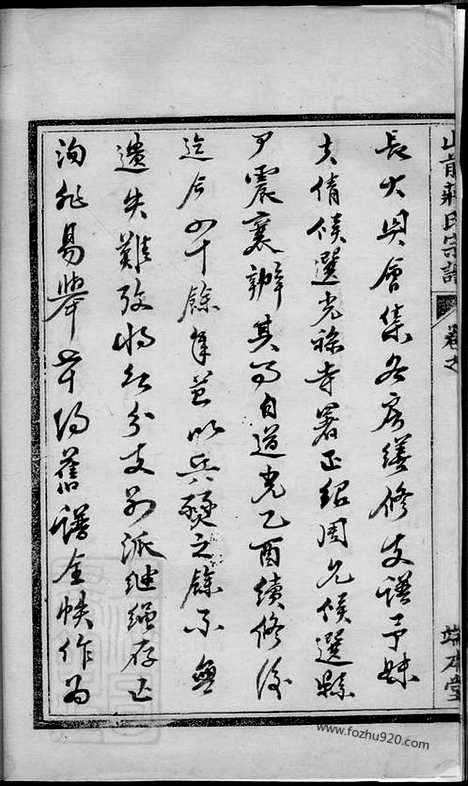 山前蔣氏宗譜
卷之
長少與會集各房續修支譜予妹
夫倩候選光祿寺署正紹周兄候選縣
尹震襄辦其事自道光乙酉續修後
迄今四十餘年茲以兵燹之餘不無
遺失難考將欲分支別派繼繩存正
洵非易舉幸得舊譜全帙作為
www.fozhu920.com